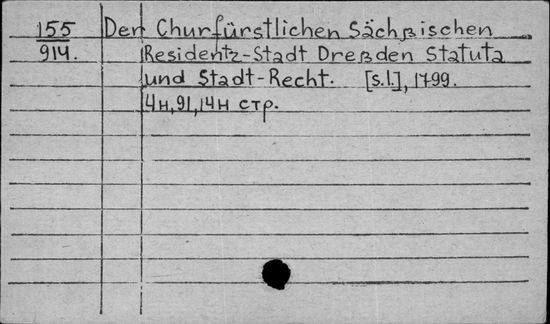 155 Der Churfürstlichen Sächßischen
914. Residentz-Stadt Dreßden Statuta
und Stadt-Recht. [s.l.], 1799.
4н, 91, 14н стр.